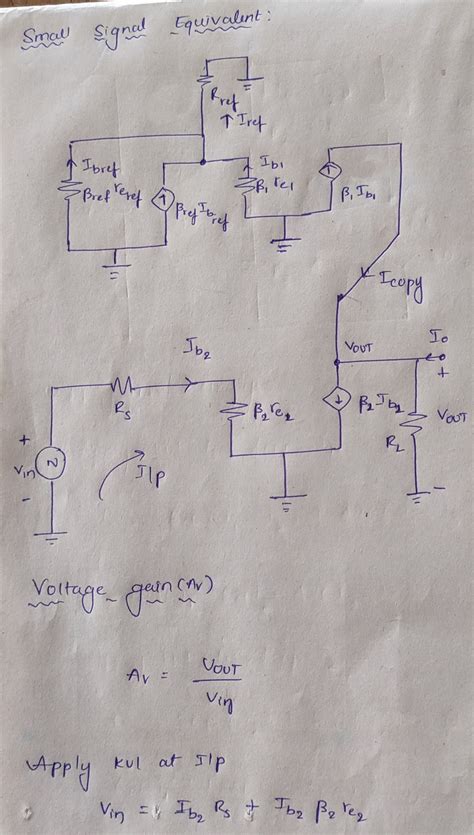 Small Signal Equivalent:
Rref
↑ Iref
Ibref
βref reref
βref Ibref
Ib1
β1 re1
β1 Ib1
Icopy
VOUT
Io
+
VOUT
-
Ib2
Rs
β2 re2
β2 Ib2
RL
+
Vin
-
N
I/p
Voltage gain (Av)
Av = VOUT
Vin
Apply KVL at I/p
Vin = Ib2 Rs + Ib2 β2 re2